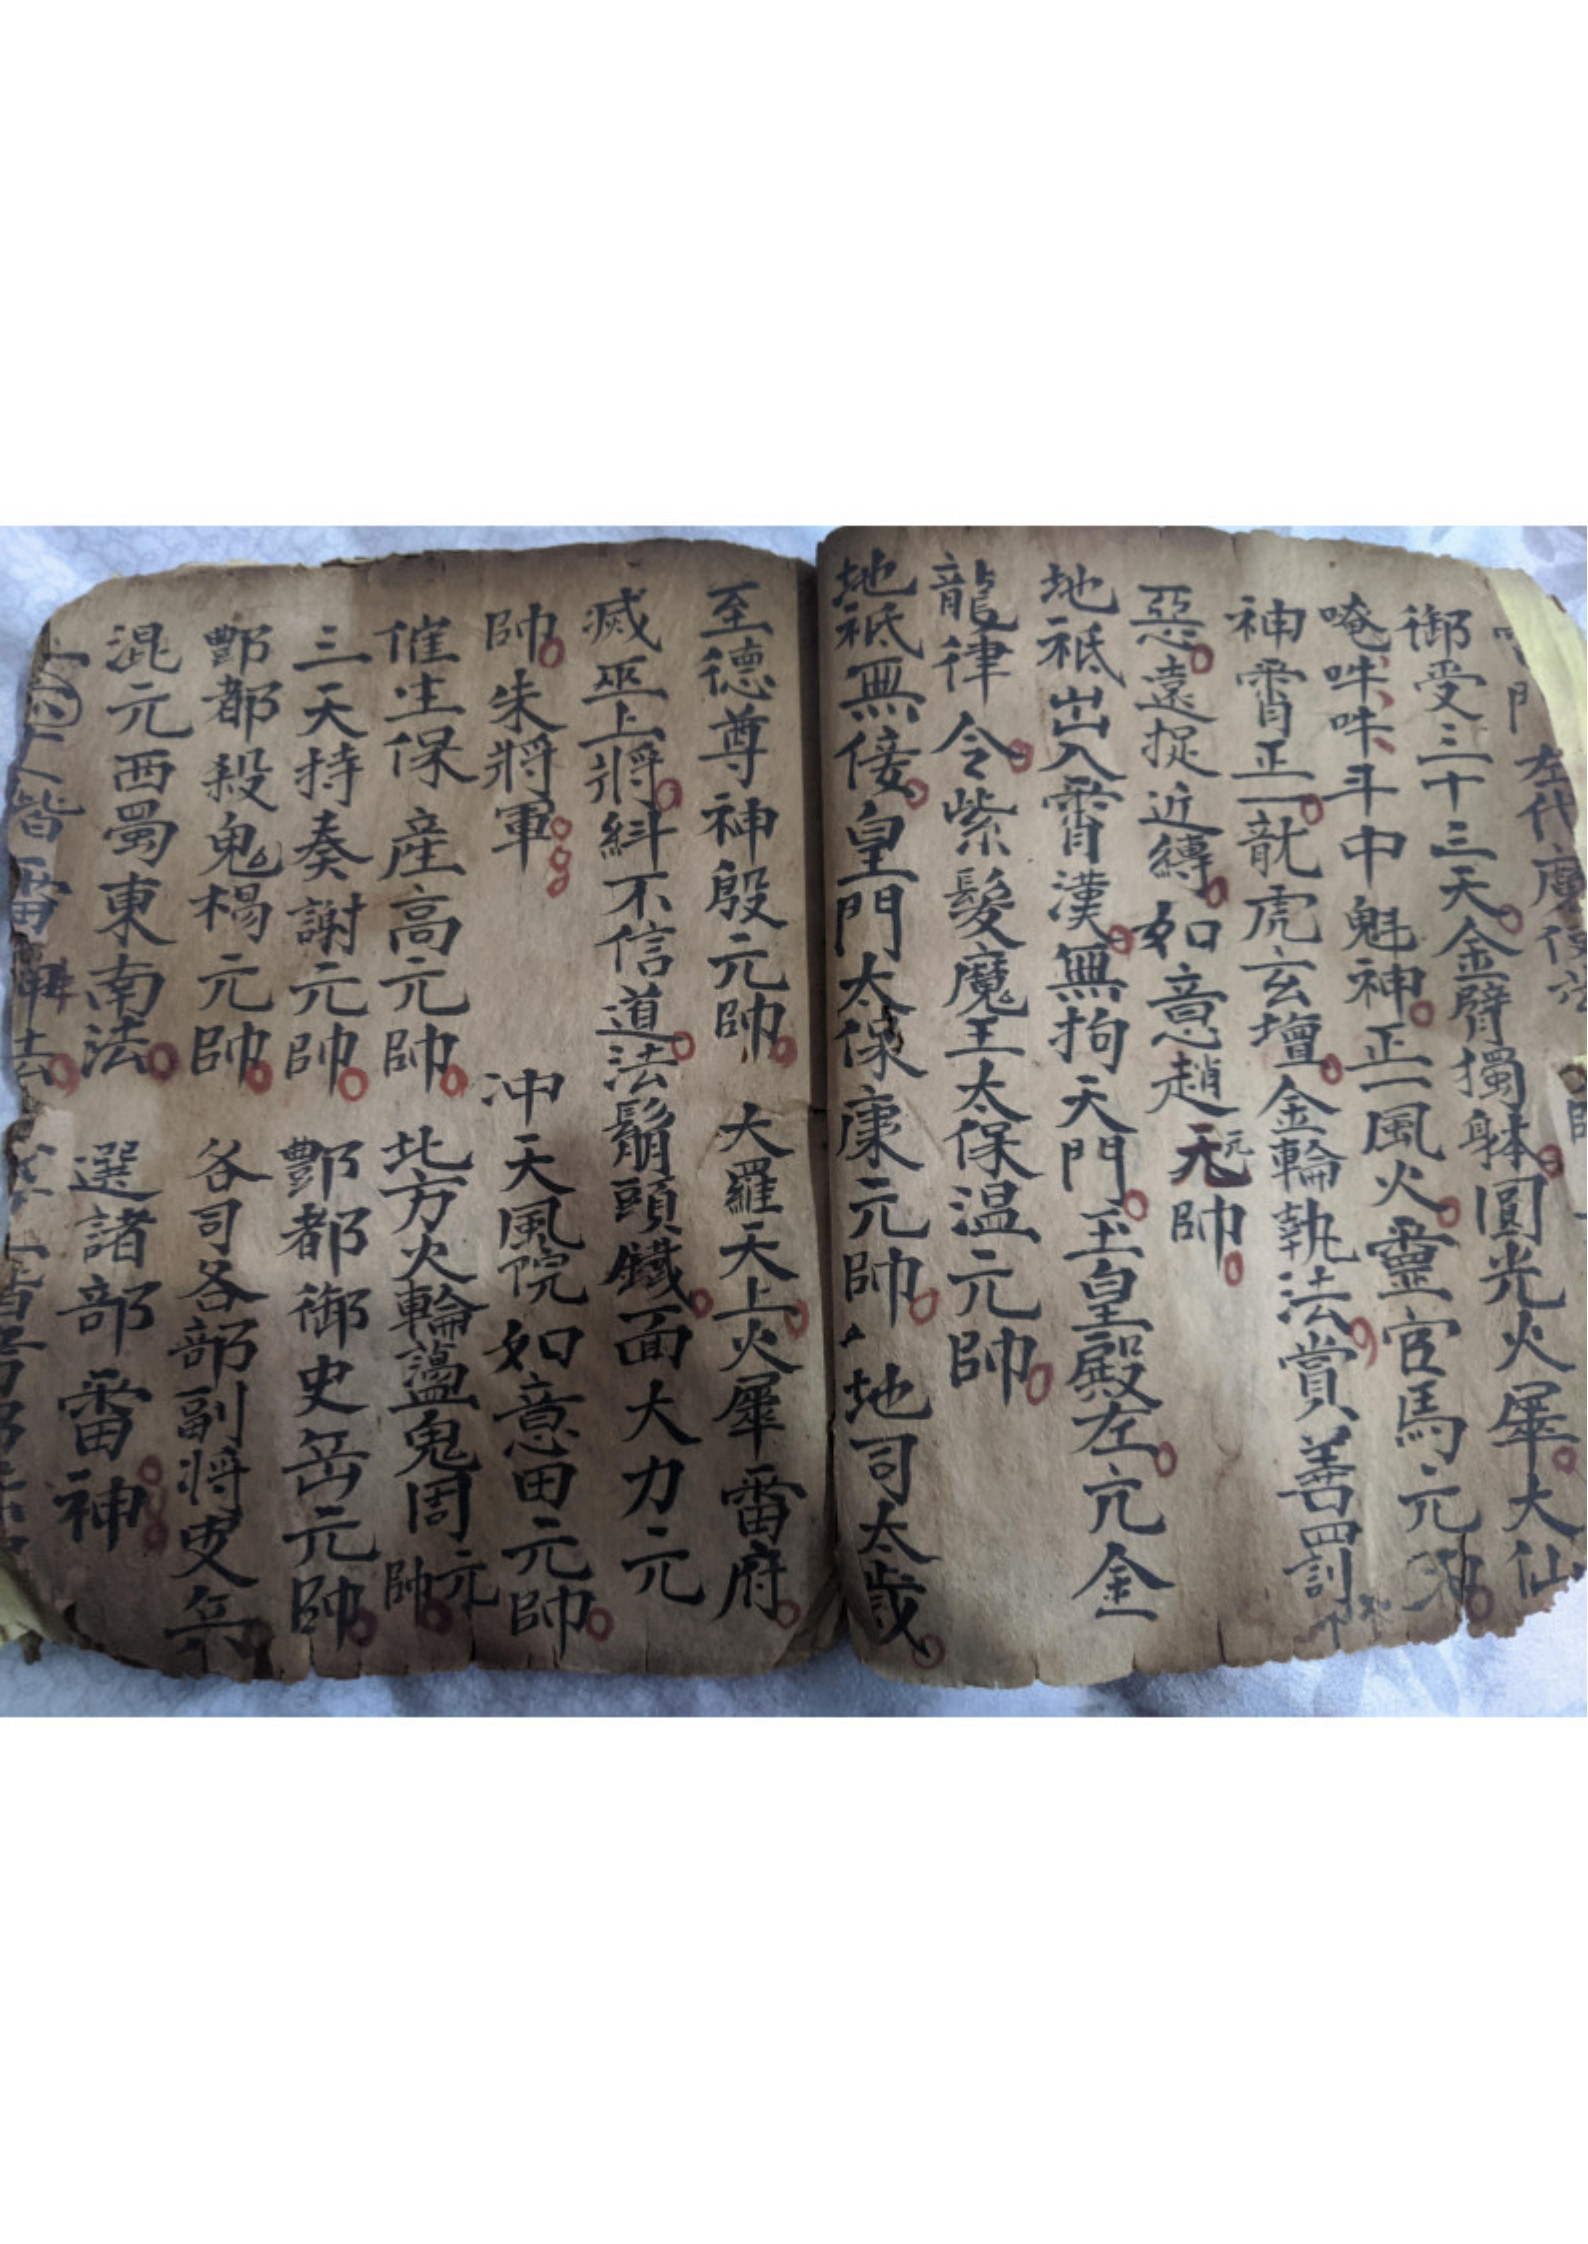 門 左代
御受三十三天金臂獨躰圓光火犀大仙
唵吽吽斗中魁神正一風火靈官馬元
神霄正一龍虎玄壇金輪執法賞善四罰
惡遠捉近縛如意趙元帥
地祇出入霄漢無拘天門玉皇殿左亢金
龍律令紫髮魔王太保温元帥
地祇無佞皇門太保康元帥 地司太歲
至德尊神殷元帥 大羅天上火犀雷府
滅巫上將糾不信道法鬅頭鐵面大力元
帥朱將軍 冲天風院如意田元帥
催生保產高元帥 北方火輪盪鬼周元帥
三天持奏謝元帥 酆都御史岳元帥
酆都殺鬼楊元帥 各司各部副將吏兵
混元西蜀東南法 選諸部雷神
皆雷